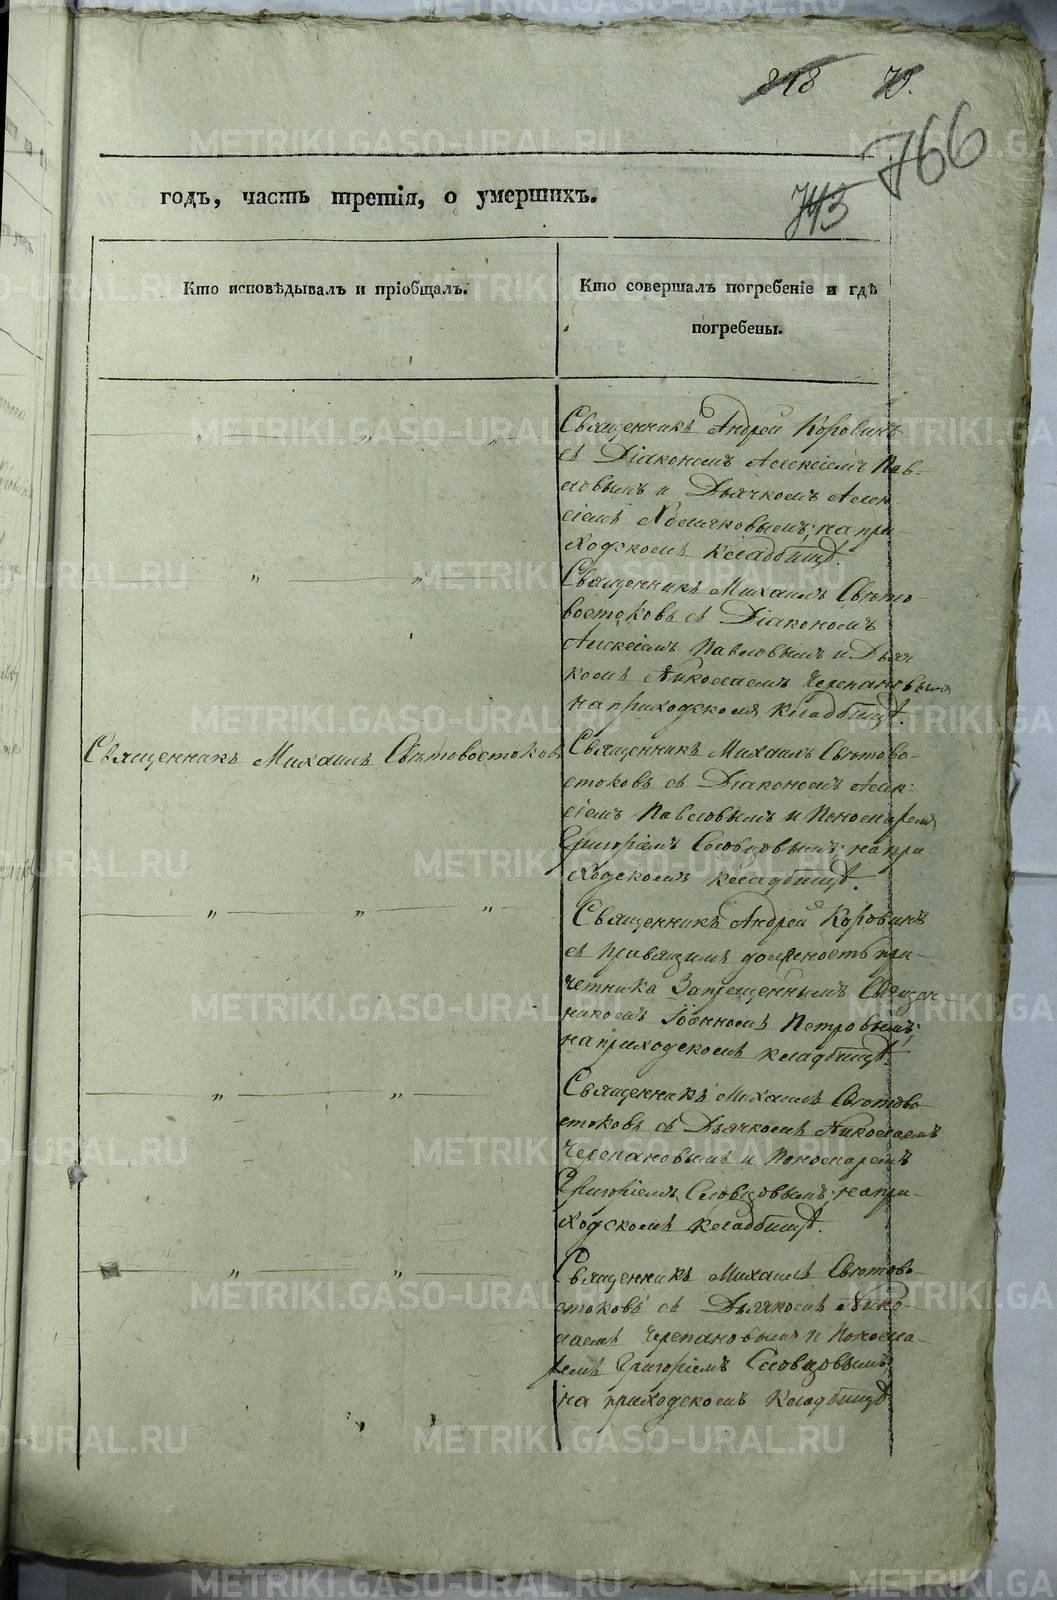 818 79.
766
743
годъ, часть третія, о умершихъ.
Кто исповѣдывалъ и пріобщалъ.
Кто совершалъ погребеніе и гдѣ
погребены.
Священникъ Андрей Коровинъ
съ Діакономъ Алексіемъ Пав-
ловымъ и Дьячкомъ Алек-
сіемъ Хомяковымъ; на при-
ходскомъ кладбищѣ.
Священникъ Михаилъ Свѣто-
востоковъ съ Діакономъ
Алексіемъ Павловымъ и Дьяч
комъ Николаемъ Черепановымъ
на приходскомъ кладбищѣ.
Священникъ Михаилъ Свѣтовостоковъ
Священникъ Михаилъ Свѣтово-
стоковъ съ Діакономъ Алек-
сіемъ Павловымъ и Пономаремъ
Григоріемъ Словцовымъ; на при
ходскомъ кладбищѣ.
Священникъ Андрей Коровинъ
съ правящимъ должность при-
четника Запрещеннымъ Священ
никомъ Іоанномъ Петровымъ;
на приходскомъ кладбищѣ.
Священникъ Михаилъ Свѣтово-
стоковъ съ Дьячкомъ Николаемъ
Черепановымъ и Пономаремъ
Григоріемъ Словцовымъ; на при-
ходскомъ кладбищѣ.
Священникъ Михаилъ Свѣтово-
стоковъ съ Дьячкомъ Нико-
лаемъ Черепановымъ и Понома-
ремъ Григоріемъ Словцовымъ;
на приходскомъ кладбищѣ
METRIKI.GASO-URAL.RU